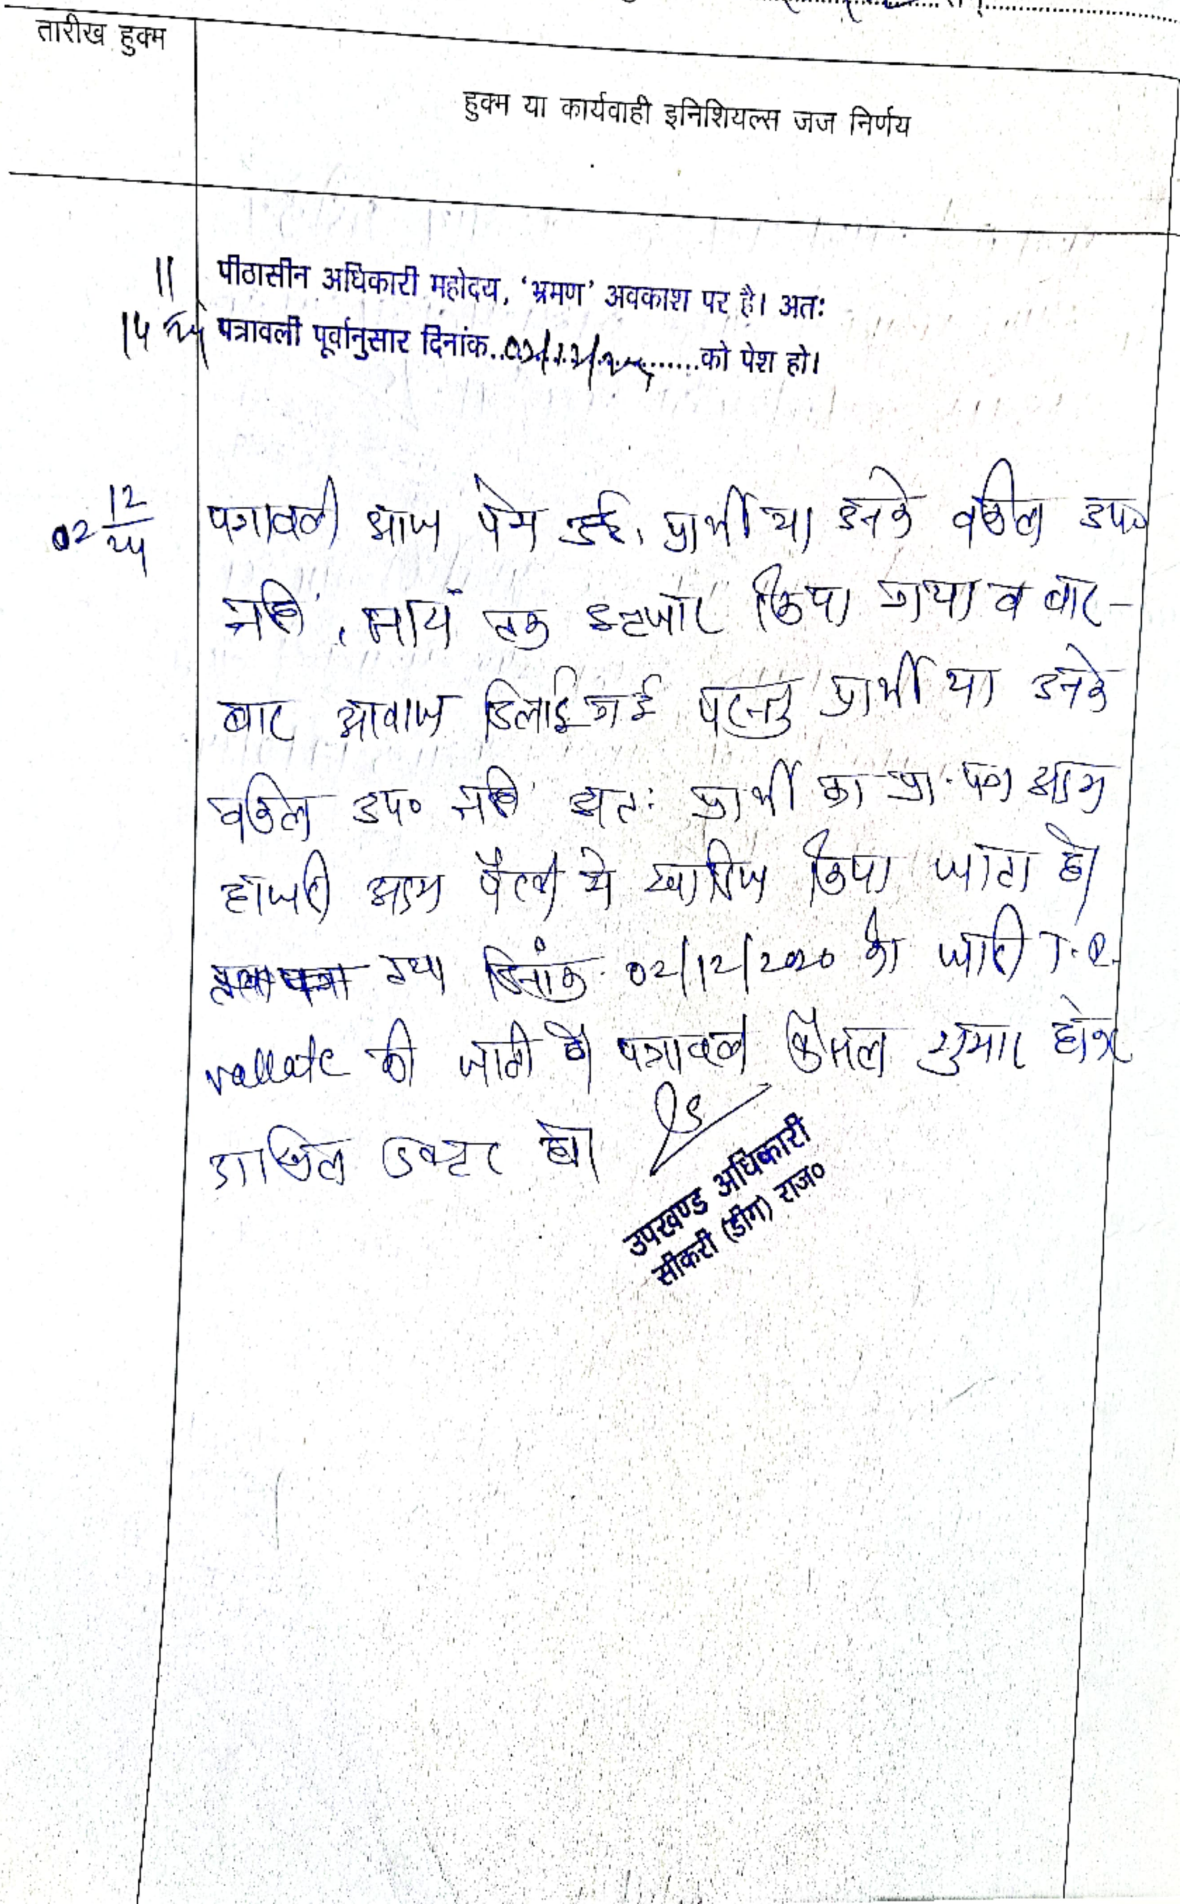 तारीख हुक्म
हुक्म या कार्यवाही इनिशियल्स जज निर्णय
11 पीठासीन अधिकारी महोदय, ‘भ्रमण’ अवकाश पर है। अतः
14 पत्रावली पूर्वानुसार दिनांक..02/12/24.......को पेश हो।
02 12/24 पत्रावली आज पेश हुई, प्रार्थी या उनके वकील उप०
नहीं, सायं तक इन्तजार किया गया व बार-
बार आवाज दिलाई गई परन्तु प्रार्थी या उनके
वकिल उप० नहीं अतः प्रार्थी का प्रा. पत्र अदम
हाजरी अदम पैरवी मे खारिज किया जाता है।
तथा दिनांक 02/12/2020 को जारी T.I.
की जाती है। पत्रावली फैसल शुमार होकर
दाखिल दफ्तर हो।
उपखण्ड अधिकारी
सीकरी (डीग) राज०